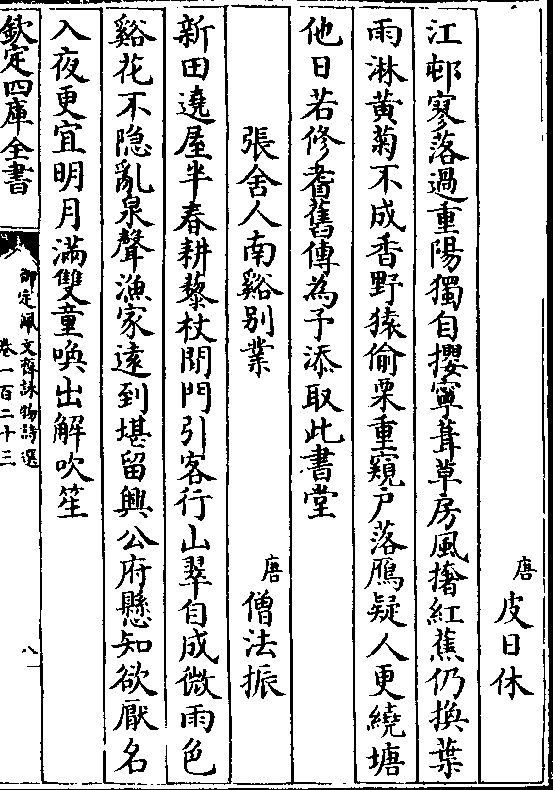 唐　皮日休
江邨寥落過重陽獨自攖寧葺草房風撦紅蕉仍換葉
雨淋黃菊不成香野猿偷栗重窺戶落鴈疑人更繞塘
他日若修耆舊傳為予添取此書堂
張舍人南谿别業
唐　僧法振
新田遶屋半春耕藜杖閒門引客行山翠自成微雨色
谿花不隐亂泉聲漁家遠到堪留興公府懸知欲厭名
入夜更宜明月滿雙童喚出解吹笙
欽定四庫全書
御定佩文齋詠物詩選
卷一百二十三
八